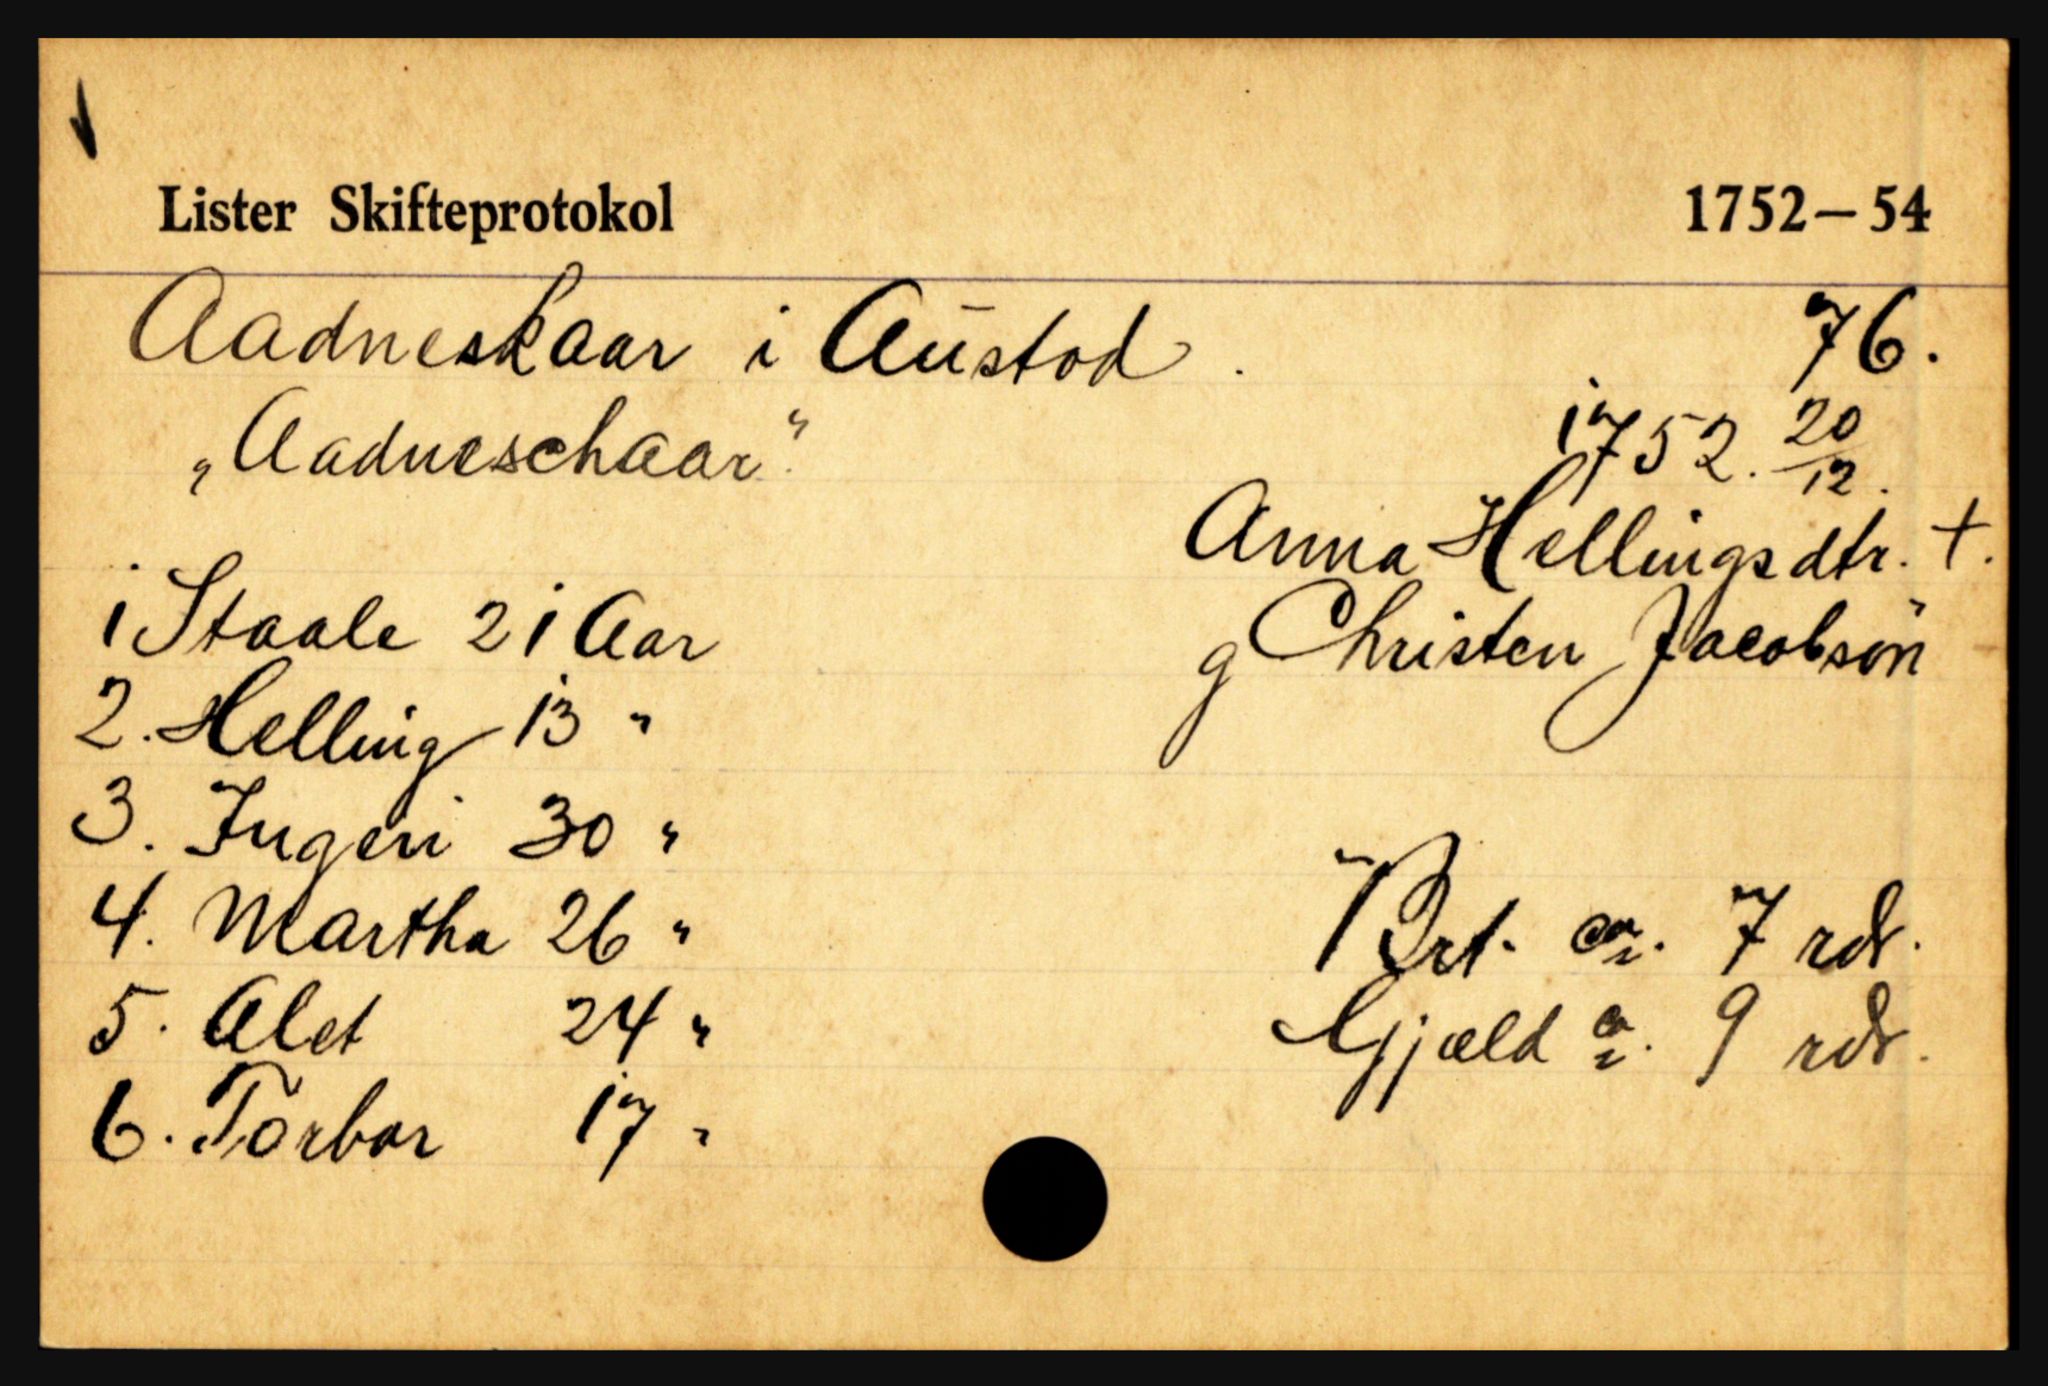 Lister Skifteprotokol 1752-54
Aadneskaar i Austod. 76.
„Aadneschaar" 1752. 20/12.
Anna Hellingsdtr. +.
1 Staale 21 Aar
g Christen Jacobsøn
2. Helling 13 "
3. Ingeri 30 "
4. Martha 26 "
Brt. ca. 7 rdr.
5. Alet 24 "
Gjæld ca. 9 rdr.
6. Torbor 17 "